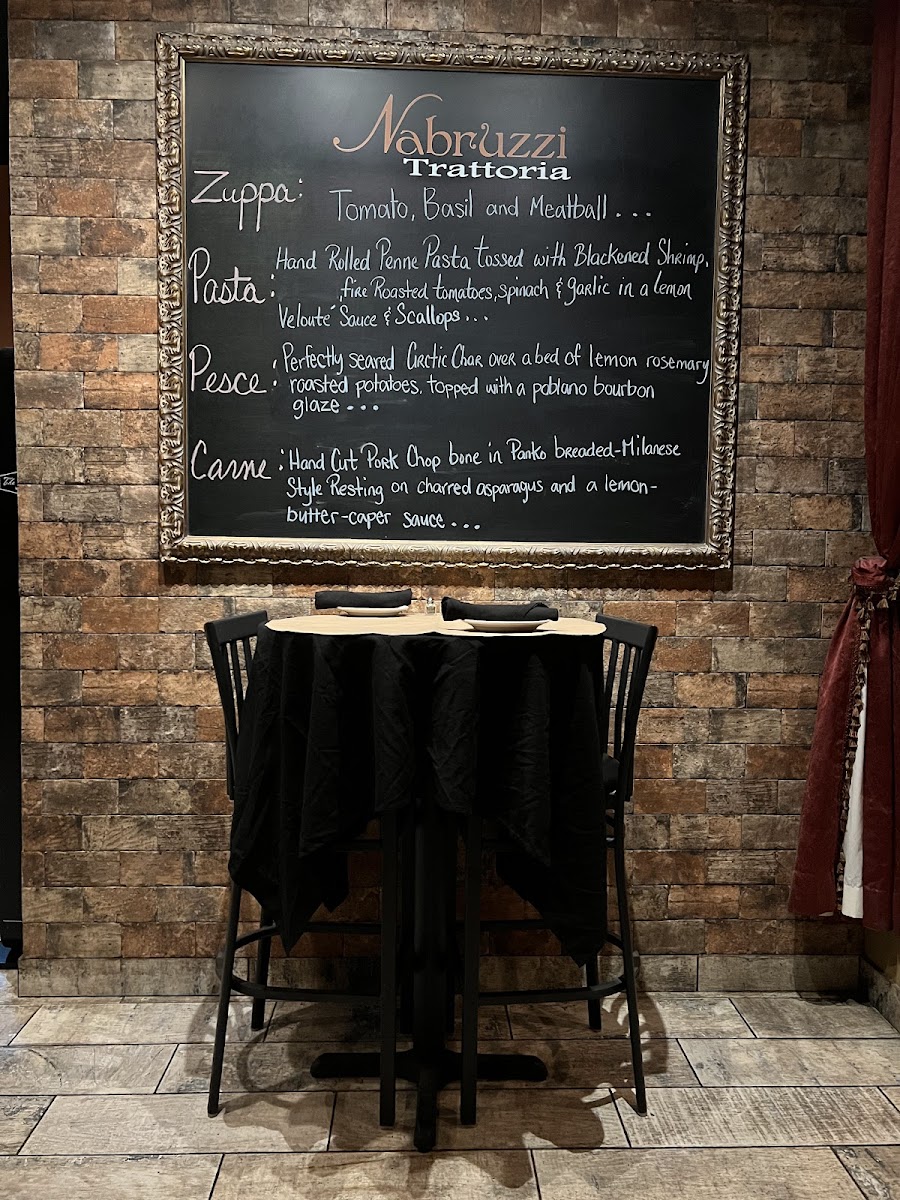 Nabruzzi
Trattoria
Zuppa: Tomato, Basil and Meatball...
Pasta: Hand Rolled Penne Pasta tossed with Blackened Shrimp,
fire Roasted tomatoes, spinach & garlic in a lemon
Velouté Sauce & Scallops...
Pesce: Perfectly seared Arctic Char over a bed of lemon rosemary
roasted potatoes. topped with a poblano bourbon
glaze...
Carne: Hand Cut Pork Chop bone in Panko breaded-Milanese
Style Resting on charred asparagus and a lemon-
butter-caper sauce...